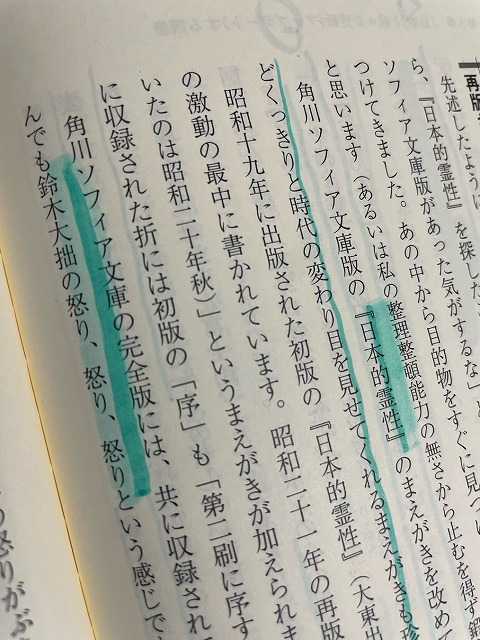 再版
先述したように
ら、『日本的霊性』を探した
ソフィア文庫版があった気がするな」と
つけてきました。あの中から目的物をすぐに見つ
と思います（あるいは私の整理整頓能力の無さから止むを得ず
角川ソフィア文庫版の『日本的霊性』のまえがきを改め
どくっきりと時代の変わり目を見せてくれるまえがきも
昭和十九年に出版された初版の『日本的霊性』（大東
の激動の最中に書かれています。昭和二十一年の再版
いたのは昭和二十年秋）」というまえがきが加えられま
に収録された折には初版の「序」も「第二刷に序す
角川ソフィア文庫の完全版には、共に収録され
んでも鈴木大拙の怒り、怒り、怒りという感じで
う怒りがぶ